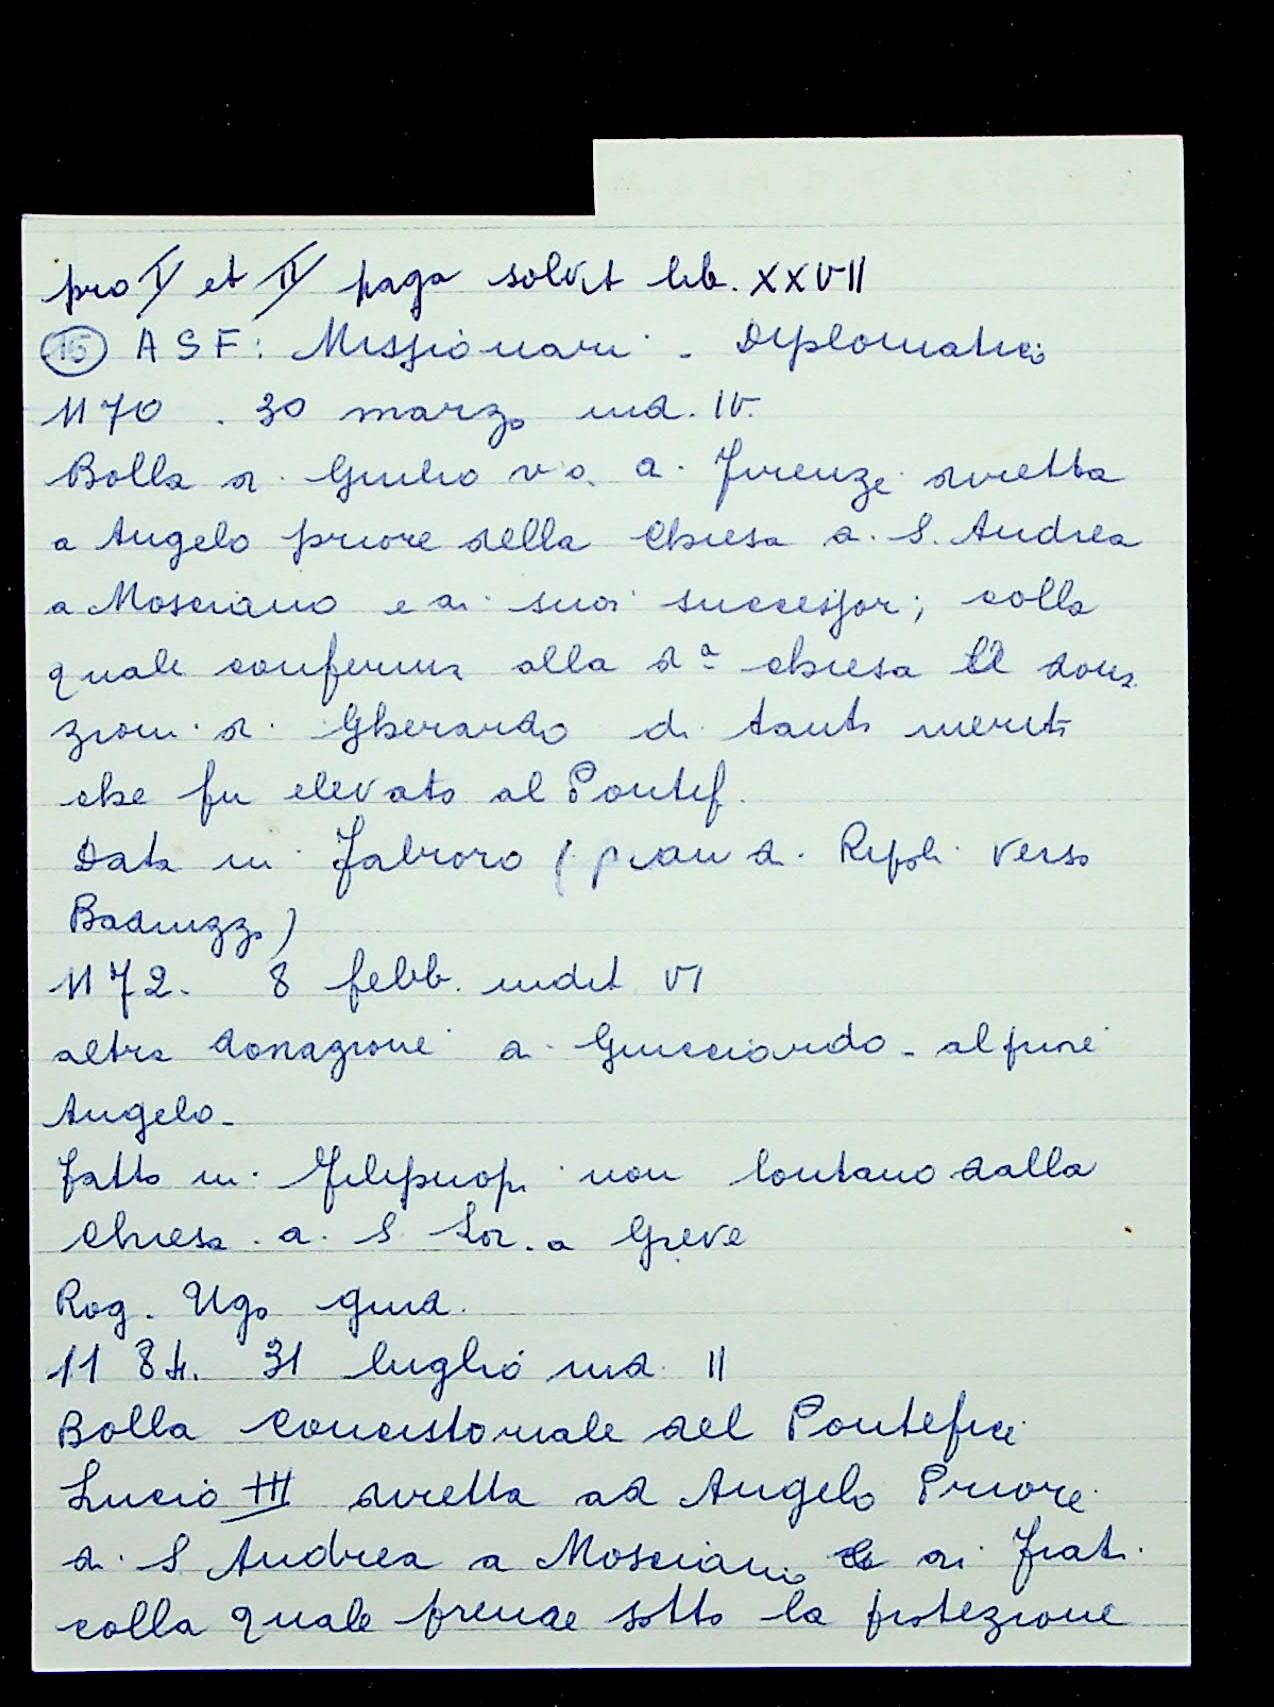 pro I et II paga solvit lib. XXVII
(15) ASF: Missionari - Diplomatico
1170 . 30 marzo ind. IV.
Bolla di Giulio vo. di Firenze diretta
a Angelo priore della Chiesa di S. Andrea
a Mosciano e ai suoi successori; colla
quale conferma alla da chiesa le dona
zioni di Gherardo di tanti meriti
che fu elevato al Pontef.
Data in Fabroro (pian di Ripoli verso
Badiuzzo)
1172. 8 febb. indit. VI
altra donazione di Guicciardo - al priore
Angelo -
fatto in non lontano dalla
Chiesa di S. Lor. a Greve
Rog. Ugo giud.
1184. 31 luglio ind. II
Bolla Concistoriale del Pontefice
Lucio III diretta ad Angelo Priore
di S. Andrea a Mosciano ai frati
colla quale prende sotto la protezione